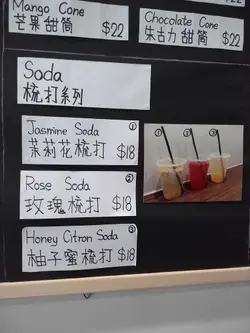 Mango Cone
芒果甜筒 $22
Chocolate Cone
朱古力甜筒 $22
Soda
梳打系列
Jasmine Soda ①
茉莉花梳打 $18
Rose Soda ②
玫瑰梳打 $18
Honey Citron Soda ③
柚子蜜梳打 $18
① ② ③